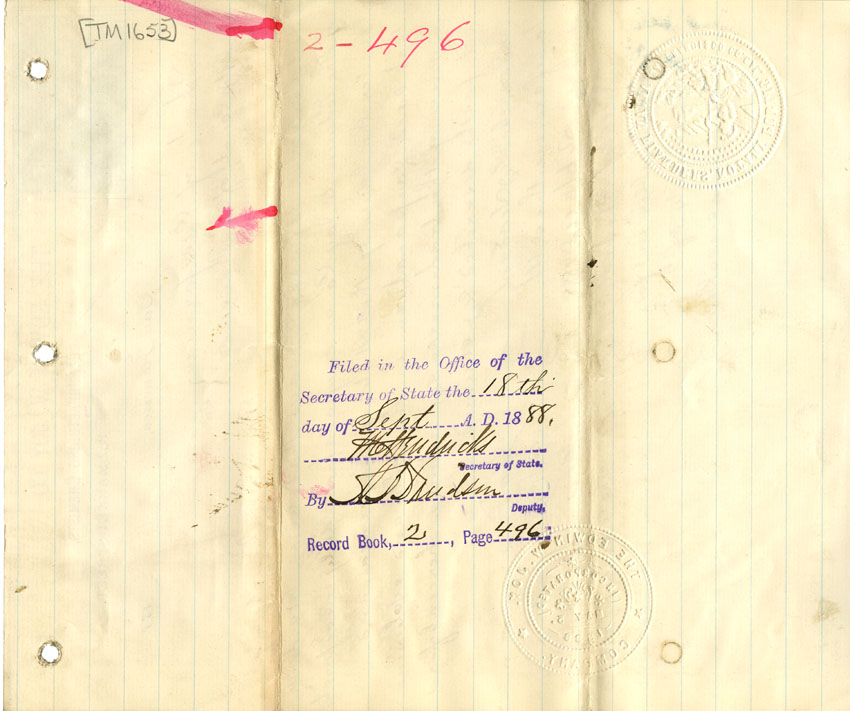 [TM1653]
2-496
Filed in the Office of the
Secretary of State the 18th
day of Sept A. D. 1888.
W C Hendricks
Secretary of State.
By
Deputy.
Record Book, 2, Page 496
THE EDWIN W. JOY
COMPANY
INCORPORATED